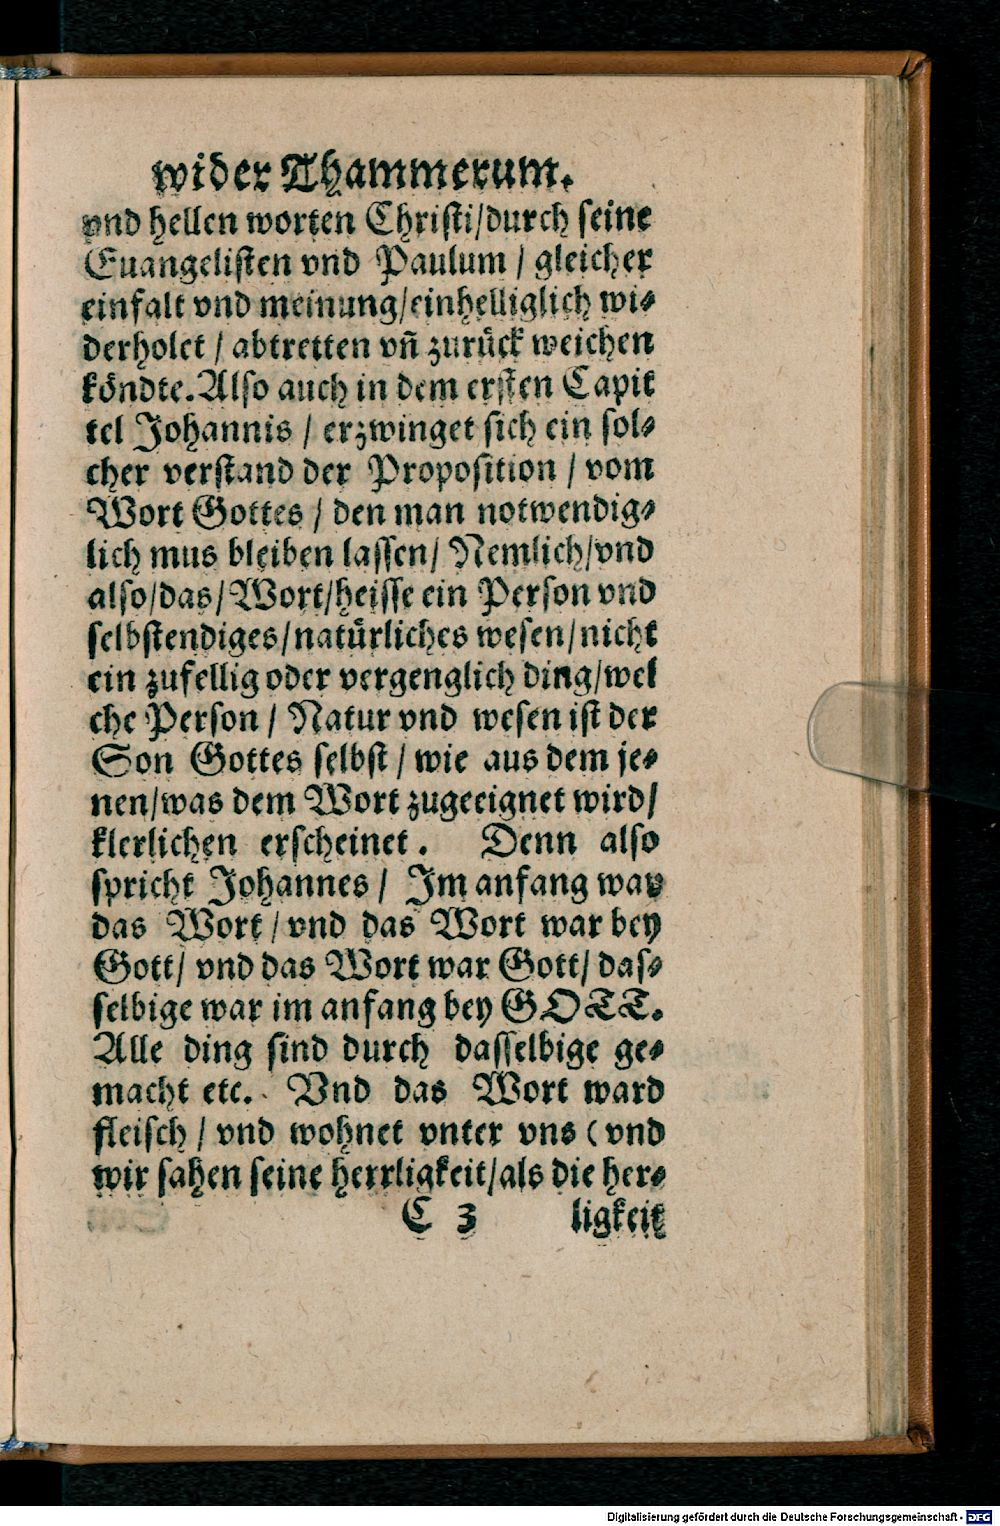 wider Thammerum.
vnd hellen worten Christi/durch seine
Euangelisten vnd Paulum / gleicher
einfalt vnd meinung/einhelliglich wi⸗
derholet / abtretten vñ zurück weichen
köndte. Also auch in dem ersten Capit
tel Johannis / erzwinget sich ein sol⸗
cher verstand der Proposition / vom
Wort Gottes / den man notwendig⸗
lich mus bleiben lassen/ Nemlich/vnd
also/das/Wort/heisse ein Person vnd
selbstendiges/natürliches wesen/nicht
ein zufellig oder vergenglich ding/wel
che Person / Natur vnd wesen ist der
Son Gottes selbst / wie aus dem je⸗
nen/was dem Wort zugeeignet wird/
klerlichen erscheinet. Denn also
spricht Johannes / Im anfang war
das Wort / vnd das Wort war bey
Gott/ vnd das Wort war Gott/ das⸗
selbige war im anfang bey GOTT.
Alle ding sind durch dasselbige ge⸗
macht etc. Vnd das Wort ward
fleisch / vnd wohnet vnter vns (vnd
wir sahen seine herrligkeit/als die her⸗
C 3 ligkeit
Digitalisierung gefördert durch die Deutsche Forschungsgemeinschaft - DFG